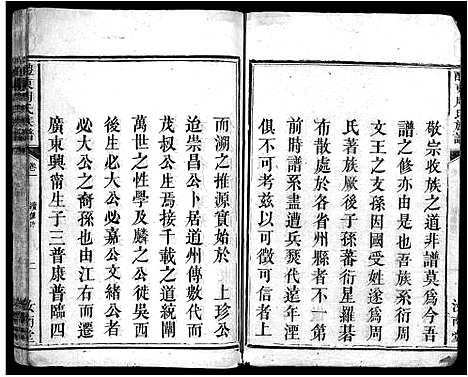 敬宗收族之道非譜莫爲今吾
譜之修亦由是也吾族系衍周
文王之支孫因國受姓遂爲周
氏著族厥後子孫蕃衍星羅碁
布散處於各省州縣者不一第
前時譜系盡遭兵燹代遠年湮
俱不可考
而溯之推源實始於　上珍公
迨崇昌公卜居道州傳數代而
茂叔公生焉接千載之道統闡
萬世之性學及麟之公徙吳西
後生必嘉公文緒公者
必大公之裔孫也由江右而遷
廣東興甯生子三普康普臨四
汝南堂